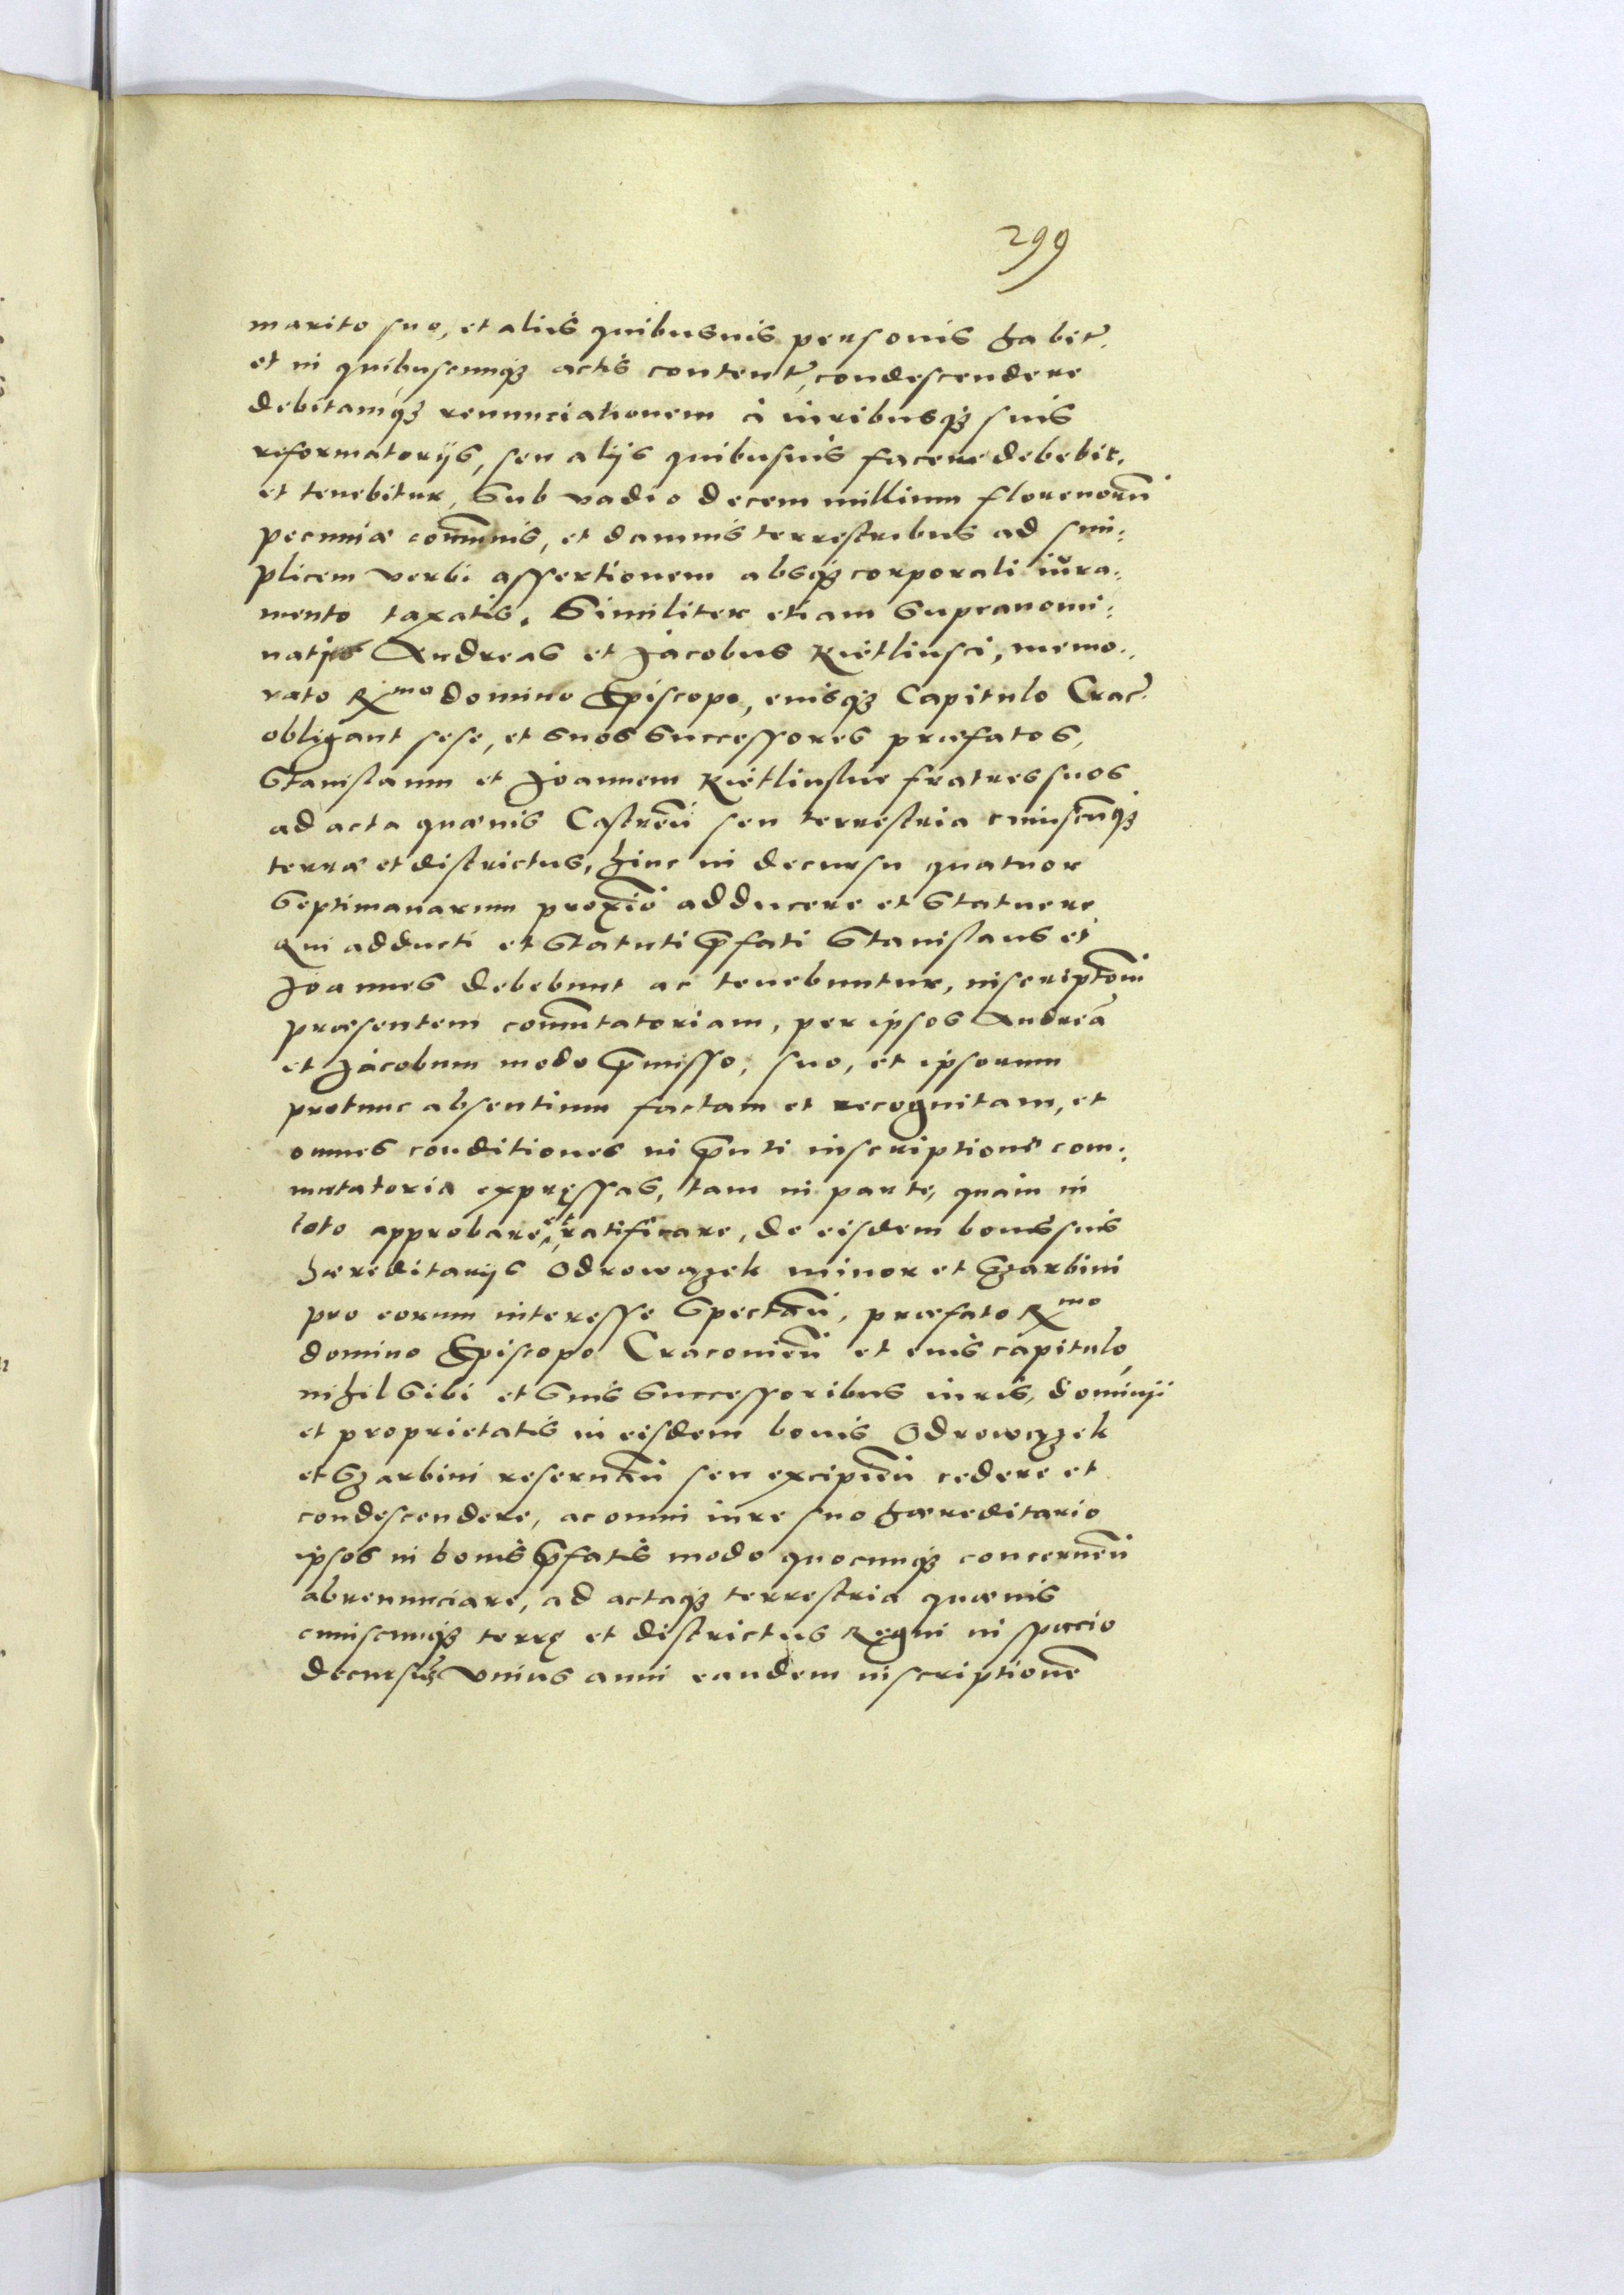 299
marito suo, et aliis quibusuis personis habit͂.
et in quibuscunqꝫ actis content͂, condescendere
debitamqꝫ renunciationem à iuribusqꝫ suis
reformatorijs, seu alijs quibusuis facere debebit,
et tenebitur, Sub vadio decem millium florenorū
pecuniæ com̄unis, et damnis terrestribus ad sim:
plicem verbi assertionem absqꝫ corporali iura:
mento taxatis. Similiter etiam Supranomi:
natj Andreas et Jacobus Kietlinsci, memo:
rato Rmo domino Episcopo, eiusqꝫ Capitulo Crac͂
obligant sese, et suos successores præfatos,
Stanislaum et Joannem Kietlinskie fratres suos
ad acta quæuis Castreñ seu terrestria cuiuscūqꝫ
terræ et districtus, hinc in decursu quatuor
Septimanarum proxīō adducere et Statuere
qui adducti et Statuti p̄fati Stanislaus et
Joannes debebunt ac tenebuntur, inscriptōm
præsentem com̄utatoriam, per ipsos Andreā
et Jacobum modo p̄misso, suo, et ipsorum
protunc absentium factam et recognitam, et
omnes conditiones in p̄nti inscriptione com:
mutatoria expręssas, tam in parte, quam in
toto approbare, et ratificare, de eisdem bonis suis
hæreditarijs Odrowązek minor et Gzarbini
pro eorum interesse Spectañ, præfato Rmo
domino Episcopo Cracouieñ et eius capitulo,
nihil Sibi et Suis Successoribus iuris, dominij
et proprietatis in eisdem bonis Odrowązek
et Gzarbini reseruañ seu excipieñ cedere et
condescendere, ac omni iure suo hæreditario
ipsos in bonis p̄fatis modo quocunqꝫ concerneñ
abrenunciare, ad actaqꝫ terrestria quæuis
cuiuscunqꝫ terrę et districtus Regni in spacio
decursus vnius anni eandem inscriptionē